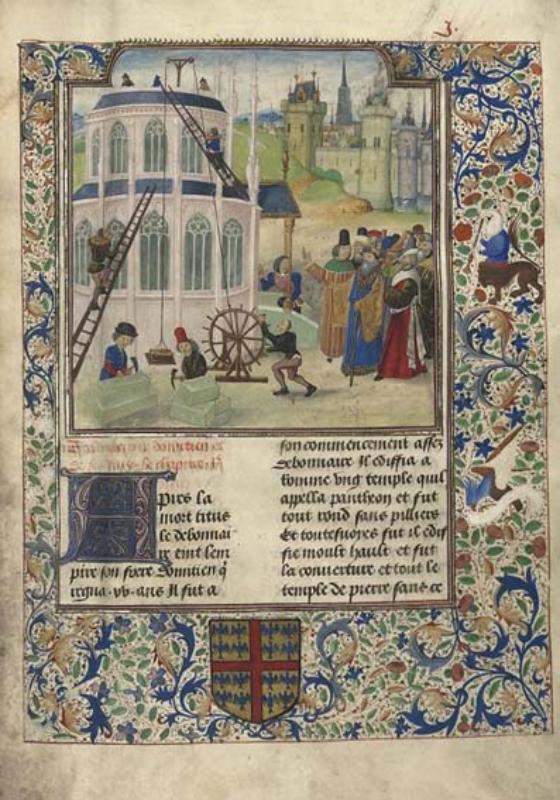 J.
domitien
le chapitre
Apres la
mort titus
le debonnai
re tint lem
pire son frere Domitien q̄
regna .xv. ans Il fut a
son commencement assez
debonnaire Il ediffia a
romme vng temple quil
appella pantheon et fut
tout rond sans pilliers
Et touteffoies fut il edif
fie moult hault et fut
la couuerture et tout le
temple de pierre sans ce